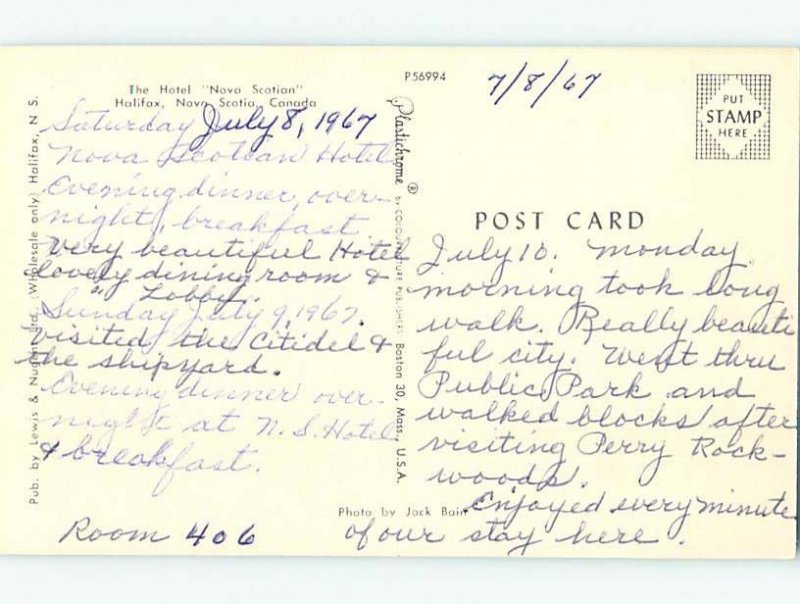 The Hotel "Nova Scotian"
Halifax, Nova Scotia, Canada
Saturday July 8, 1967
Nova Scotian Hotel
Evening dinner, over-
night, breakfast
very beautiful Hotel
lovely dining room &
" Lobby.
Sunday July 9, 1967.
visited the Citidel &
the shipyard.
Evening dinner over-
night at N. S. Hotel
& breakfast.
Room 406
Pub. by Lewis & Nugent Ltd., (Wholesale only) Halifax, N S.
P56994
Plastichrome ® by COLOURPICTURE PUBLISHERS Boston 30, Mass., U.S.A.
7/8/67
PUT
STAMP
HERE
POST CARD
July 10. Monday
morning took long
walk. Really beauti
ful city. Went thru
Public Park and
walked blocks after
visiting Perry Rock-
woods.
Photo by Jack Bain
Enjoyed every minute
of our stay here.